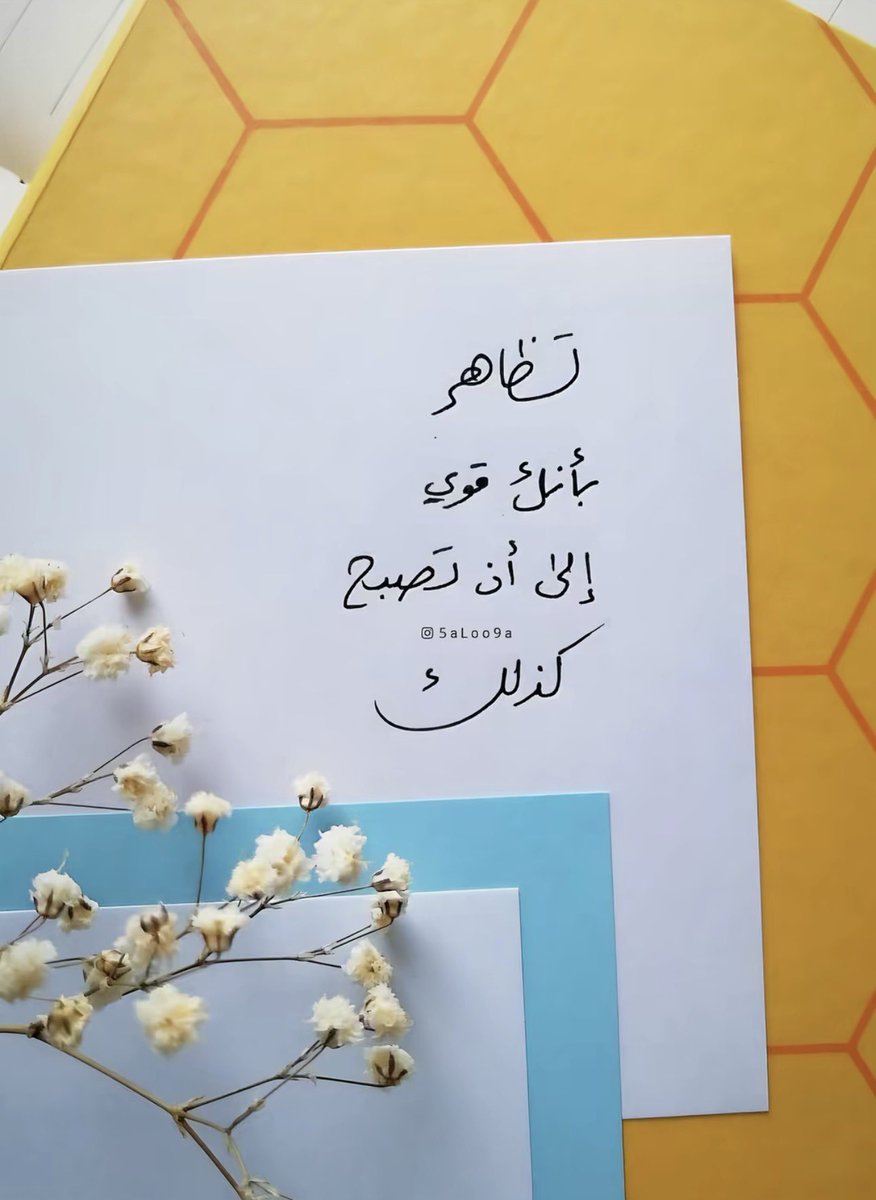 تظاهر
بأنك قوي
إلى أن تصبح
5aLoo9a
كذلك